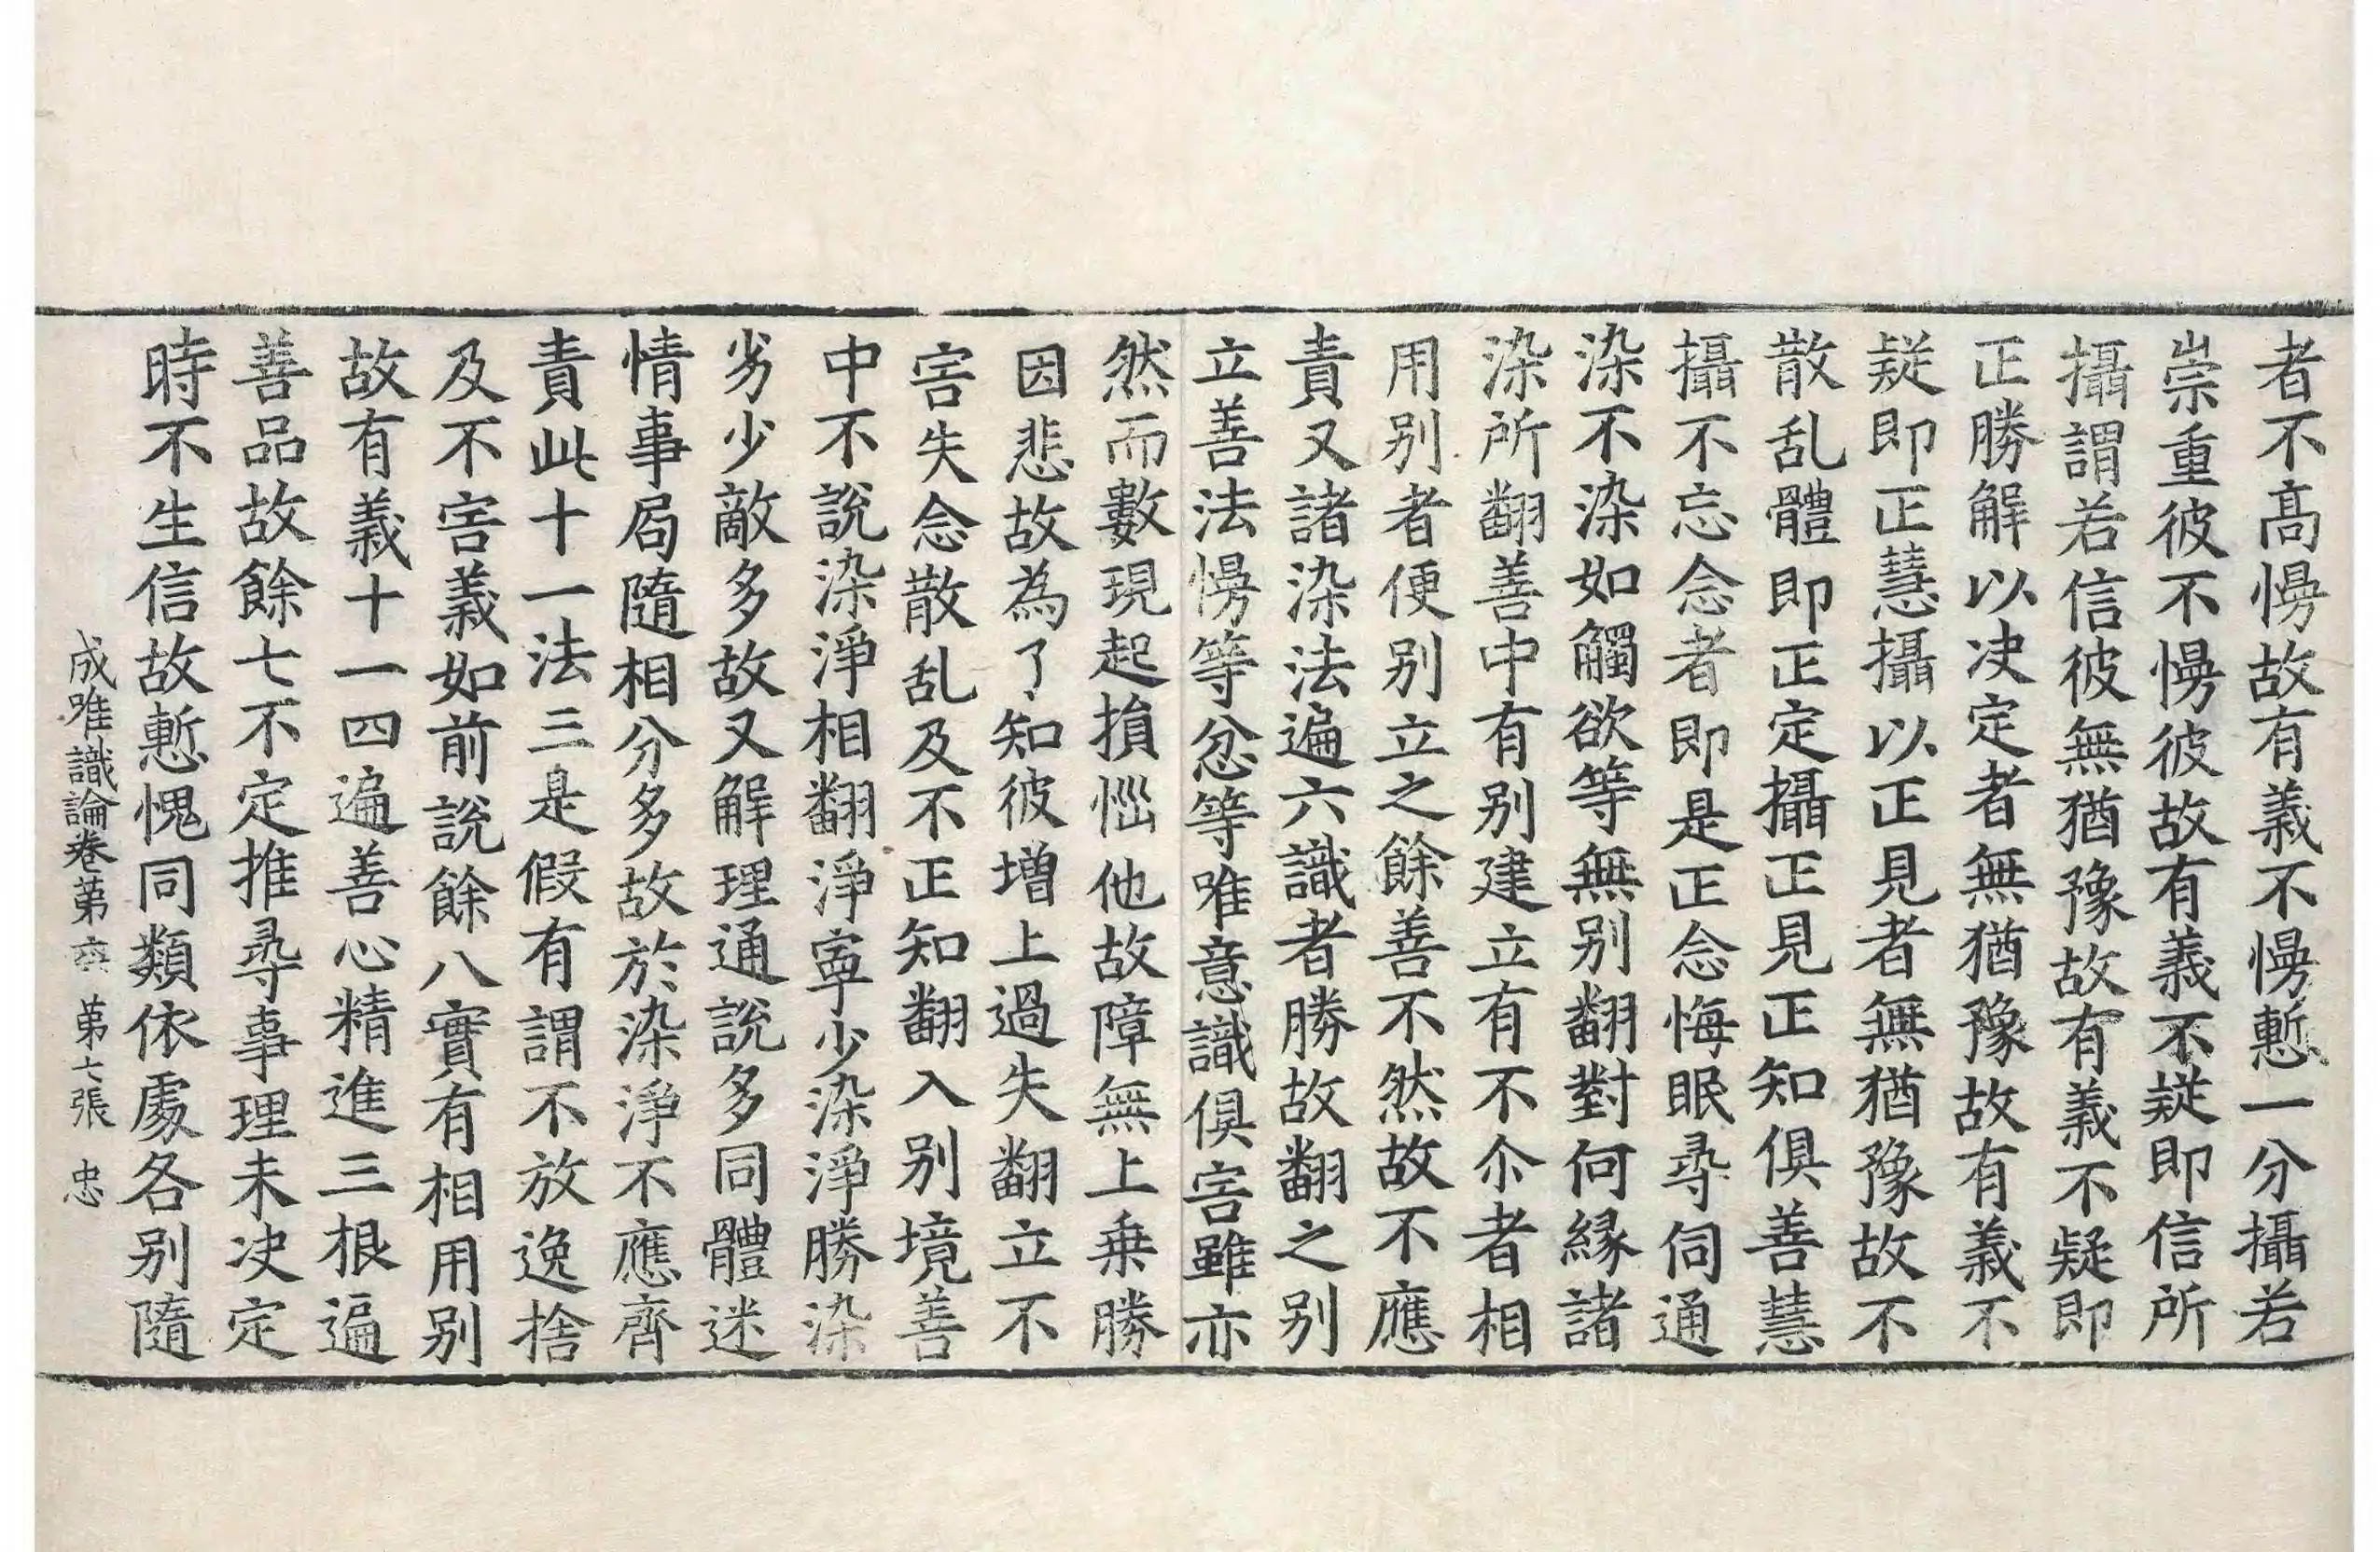 者不高慢故有義不慢慙一分攝若
崇重彼不慢彼故有義不疑即信所
攝謂若信彼無猶豫故有義不疑即
正勝解以决定者無猶豫故有義不
疑即正慧攝以正見者無猶豫故不
散乱體即正定攝正見正知俱善慧
攝不忘念者即是正念悔眠尋伺通
染不染如觸欲等無别翻對何緣諸
染所翻善中有别建立有不尒者相
用别者便别立之餘善不然故不應
責又諸染法遍六識者勝故翻之别
立善法慢等忿等唯意識俱害雖亦
然而數現起損惱他故障無上乗勝
因悲故為了知彼增上過失翻立不
害失念散乱及不正知翻入别境善
中不說染淨相翻淨寧少染淨勝染
劣少敵多故又解理通說多同體迷
情事局隨相分多故於染淨不應齊
責此十一法三是假有謂不放逸捨
及不害義如前說餘八實有相用别
故有義十一四遍善心精進三根遍
善品故餘七不定推尋事理未决定
時不生信故慙愧同類依處各别隨
成唯識論卷苐六 苐七張 忠